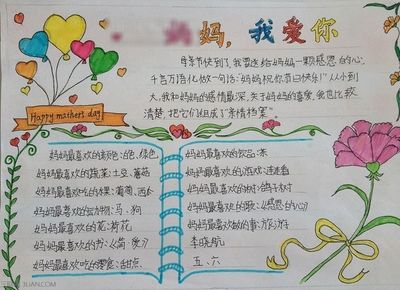 妈妈,我爱你
母亲节快到了,我要送给妈妈一颗感恩的心,
千言万语化做一句话:"妈妈祝你节日快乐!"从小到
大,我和妈妈的感情最深,关于妈妈的喜爱,我也比较
清楚,把它们组成了"亲情档案"
Happy mother's day!
妈妈最喜欢的颜色:白色、绿色
妈妈最喜欢的蔬菜:土豆、蘑菇
妈妈最喜欢吃的水果:葡萄、西瓜
妈妈最喜欢的动物:马、狗
妈妈最喜欢的花:菊花
妈妈最喜欢的书:《简·爱》
妈妈最喜欢吃的零食:甜点
妈妈最喜欢的饮品:茶
妈妈最喜欢的游戏:连连看
妈妈最喜欢的树:梧子树
妈妈最喜欢的歌:《感恩的心》
妈妈最喜欢做的事:旅游
李晓航
五、六